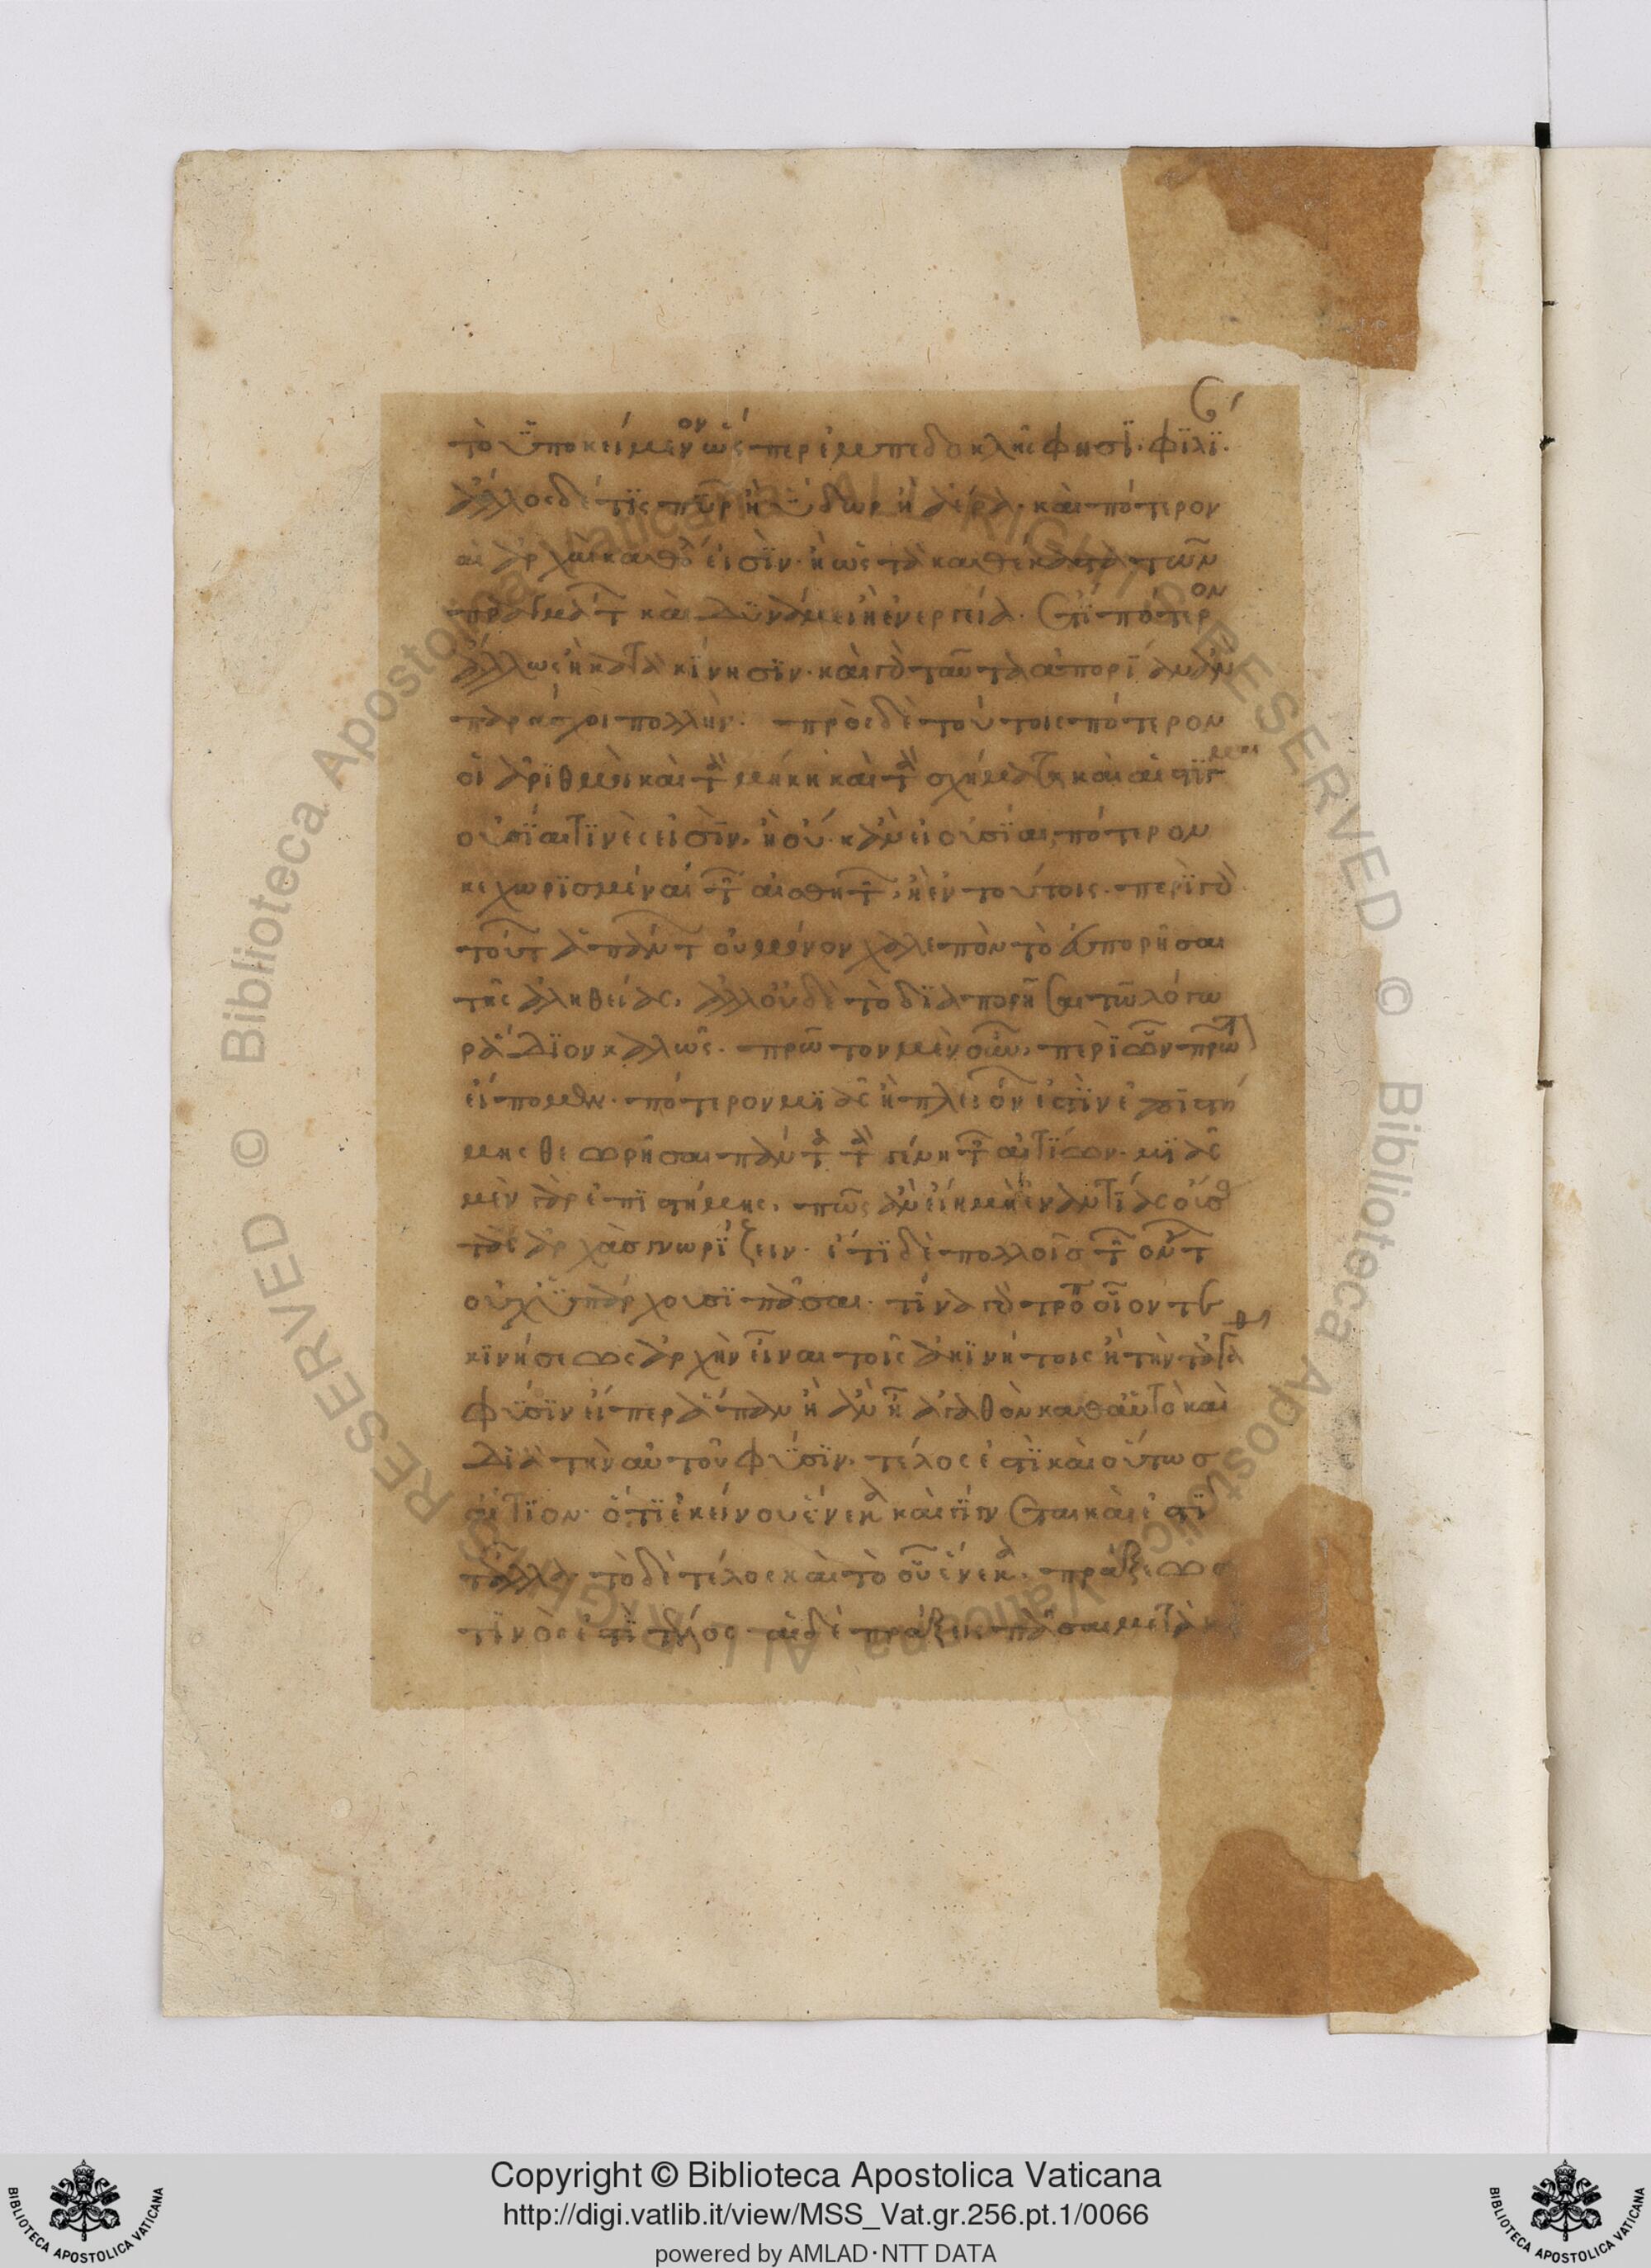 ϛʹ
τὸ ὑποκείμενον ὥσπερ ἐμπεδοκλῆς φησὶ· φιλί·
ἄλλος δέ τις πῦρ ἢ ὕδωρ ἢ ἀέρα· καὶ πότερον
αἱ ἀρχαὶ καθό εἰσὶν· ἢ ὡς τὰ καθέκαστα τῶν
πραγμάτ καὶ δυνάμει ἢ ἐνεργείᾳ· ἔτι πότερον
ἄλλως ἢ κατὰ κίνησιν· καὶ γὰρ ταῦτα ἀπορίαν ἂν
παράσχοι πολλήν· πρὸς δὲ τούτοις πότερον
οἱ ἀριθμοὶ καὶ τὰ μήκη καὶ τὰ σχήματα καὶ αἱ στιγμαι
οὐσίαι τινές εἰσὶν, ἢ οὔ· κἂν εἰ οὐσίαι, πότερον
κεχωρισμέναι τῶν αἰσθητῶν, ἢ ἐν τούτοις· περὶ γὰρ
τούτ ἁπάντ οὐ μόνον χαλεπὸν τὸ ἀπορῆσαι
τῆς ἀληθείας, ἀλλ οὐδὲ τὸ διαπορῆσαι τῷ λόγω
ῥάδιον καλῶς· πρῶτον μὲν οὖν, περὶ ὧν πρῶτ
εἴπομεν· πότερον μιᾶς ἢ πλειόν ἐστὶν ἐπιστή
μης θεωρῆσαι πάντα τὰ γένη τῶν αἰτίων· μιᾶς
μὲν γὰρ ἐπιστήμης, πῶς ἂν εἴη μὴ ἐναντίας οὔσ
τὰς ἀρχὰς γνωρίζειν· ἔτι δὲ πολλοῖς τῶν ὄντ
οὐχ ὑπάρχουσι πᾶσαι· τίνα γὰρ τρόπ οἷόν τε
κινήσεως ἀρχὴν εἶναι τοῖς ἀκινήτοις ἢ τὴν τἀγαθ
φύσιν εἴπερ ἅπαν ὃ ἂν ἦ ἀγαθὸν καθ αὑτὸ καὶ
διὰ τὴν αὑτοῦ φύσιν, τέλος ἐστὶ καὶ οὕτως
αἴτιον· ὅτι ἐκείνου ἕνεκα καὶ γίνεται καὶ ἐστὶ
τἄλλα· τὸ δὲ τέλος καὶ τὸ οὗ ἕνεκα, πράξεως
τινός ἐστὶ τέλος· αἱ δὲ πράξεις πᾶσαι μετὰ κι
Copyright © Biblioteca Apostolica Vaticana
http://digi.vatlib.it/view/MSS_Vat.gr.256.pt.1/0066
powered by AMLAD·NTT DATA
BIBLIOTECA APOSTOLICA VATICANA
BIBLIOTECA APOSTOLICA VATICANA
Biblioteca Apostolica Vaticana ALL RIGHTS RESERVED ©
Biblioteca Apostolica Vaticana ALL RIGHTS RESERVED ©